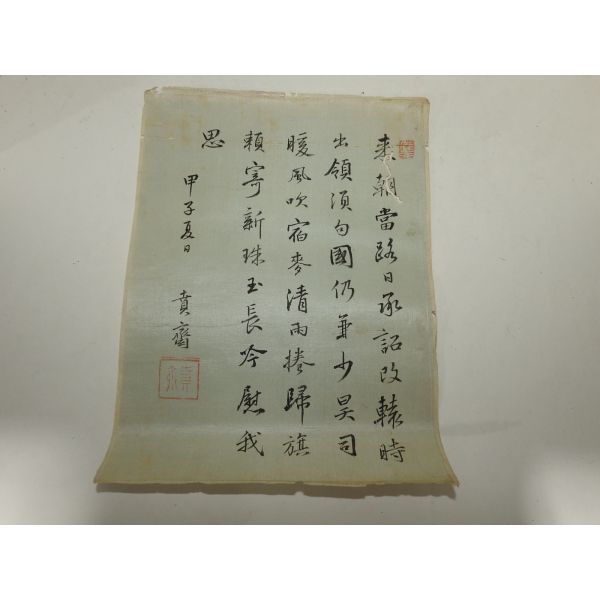 來朝當路日承詔改轅時
出領須句國仍兼少昊司
暖風吹宿麥清雨捲歸旗
賴寄新珠玉長吟慰我
思
甲子夏日 賁齋